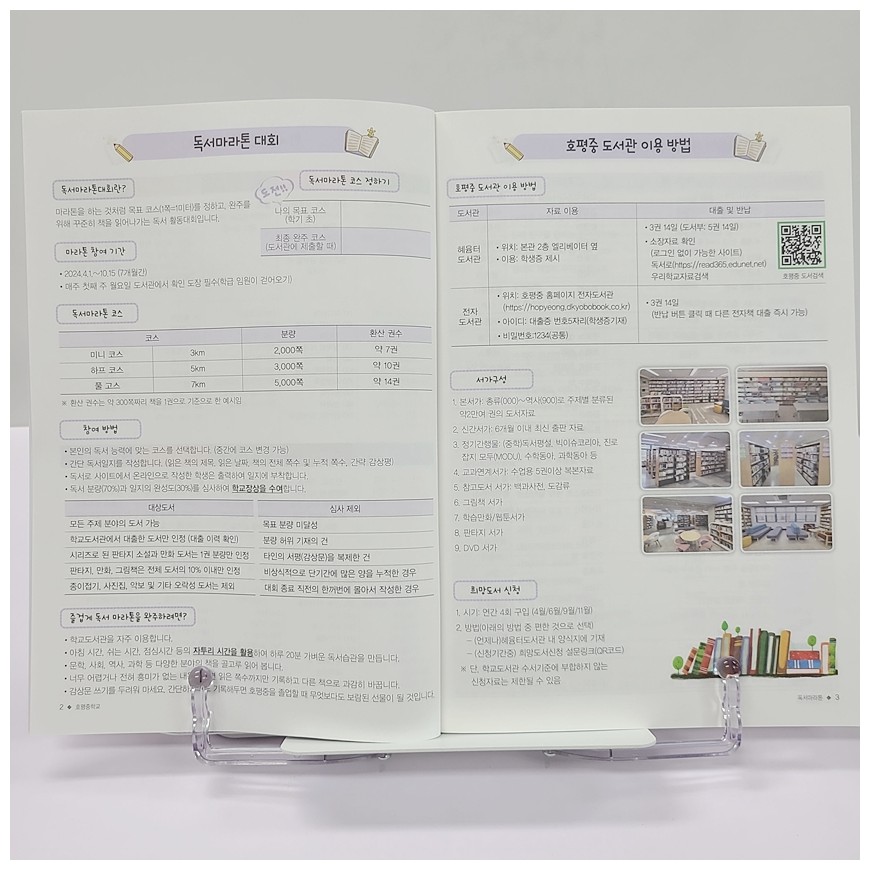 독서마라톤 대회
독서마라톤대회란?
마라톤을 하는 것처럼 목표 코스(1쪽=1미터)를 정하고, 완주를
위해 꾸준히 책을 읽어나가는 독서 활동대회입니다.
도전!!
독서마라톤 코스 정하기
나의 목표 코스
(학기 초)
최종 완주 코스
(도서관에 제출할 때)
마라톤 참여 기간
• 2024.4.1.~10.15 (7개월간)
• 매주 첫째 주 월요일 도서관에서 확인 도장 필수(학급 임원이 걷어오기)
독서마라톤 코스
코스 분량 환산 권수
미니 코스 3km 2,000쪽 약 7권
하프 코스 5km 3,000쪽 약 10권
풀 코스 7km 5,000쪽 약 14권
※ 환산 권수는 약 300쪽짜리 책을 1권으로 기준으로 한 예시임
참여 방법
• 본인의 독서 능력에 맞는 코스를 선택합니다. (중간에 코스 변경 가능)
• 간단 독서일지를 작성합니다. (읽은 책의 제목, 읽은 날짜, 책의 전체 쪽수 및 누적 쪽수, 간략 감상평)
• 독서로 사이트에서 온라인으로 작성한 학생은 출력하여 일지에 부착합니다.
• 독서 분량(70%)과 일지의 완성도(30%)를 심사하여 학교장상을 수여합니다.
대상도서 심사 제외
모든 주제 분야의 도서 가능 목표 분량 미달성
학교도서관에서 대출한 도서만 인정 (대출 이력 확인) 분량 허위 기재의 건
시리즈로 된 판타지 소설과 만화 도서는 1권 분량만 인정 타인의 서평(감상문)을 복제한 건
판타지, 만화, 그림책은 전체 도서의 10% 이내만 인정 비상식적으로 단기간에 많은 양을 누적한 경우
종이접기, 사진집, 악보 및 기타 오락성 도서는 제외 대회 종료 직전의 한꺼번에 몰아서 작성한 경우
즐겁게 독서 마라톤을 완주하려면?
• 학교도서관을 자주 이용합니다.
• 아침 시간, 쉬는 시간, 점심시간 등의 자투리 시간을 활용하여 하루 20분 가벼운 독서습관을 만듭니다.
• 문학, 사회, 역사, 과학 등 다양한 분야의 책을 골고루 읽어 봅니다.
• 너무 어렵거나 전혀 흥미가 없는 읽은 쪽수까지만 기록하고 다른 책으로 과감히 바꿉니다.
• 감상문 쓰기를 두려워 마세요. 간단히 기록해두면 호평중을 졸업할 때 무엇보다도 보람된 선물이 될 것입니다.
2 ◆ 호평중학교
호평중 도서관 이용 방법
호평중 도서관 이용 방법
도서관 자료 이용 대출 및 반납
혜윰터
도서관
• 위치: 본관 2층 엘리베이터 옆
• 이용: 학생증 제시
• 3권 14일 (도서부: 5권 14일)
• 소장자료 확인
(로그인 없이 가능한 사이트)
독서로(https://read365.edunet.net)
우리학교자료검색
호평중 도서검색
전자
도서관
• 위치: 호평중 홈페이지 전자도서관
(https://hopyeong.dkyobobook.co.kr)
• 아이디: 대출증 번호5자리(학생증기재)
• 비밀번호:1234(공통)
• 3권 14일
(반납 버튼 클릭 때 다른 전자책 대출 즉시 가능)
서가구성
1. 본서가: 총류(000)~역사(900)로 주제별 분류된
약2만여 권의 도서자료
2. 신간서가: 6개월 이내 최신 출판 자료
3. 정기간행물: (중학)독서평설, 빅이슈코리아, 진로
잡지 모두(MODU), 수학동아, 과학동아 등
4. 교과연계서가: 수업용 5권이상 복본자료
5. 참고도서 서가: 백과사전, 도감류
6. 그림책 서가
7. 학습만화/웹툰서가
8. 판타지 서가
9. DVD 서가
희망도서 신청
1. 시기: 연간 4회 구입 (4월/6월/9월/11월)
2. 방법(아래의 방법 중 편한 것으로 선택)
– (언제나)혜윰터도서관 내 양식지에 기재
– (신청기간중) 희망도서신청 설문링크(QR코드)
※ 단, 학교도서관 수서기준에 부합하지 않는
신청자료는 제한될 수 있음
독서마라톤 ◆ 3